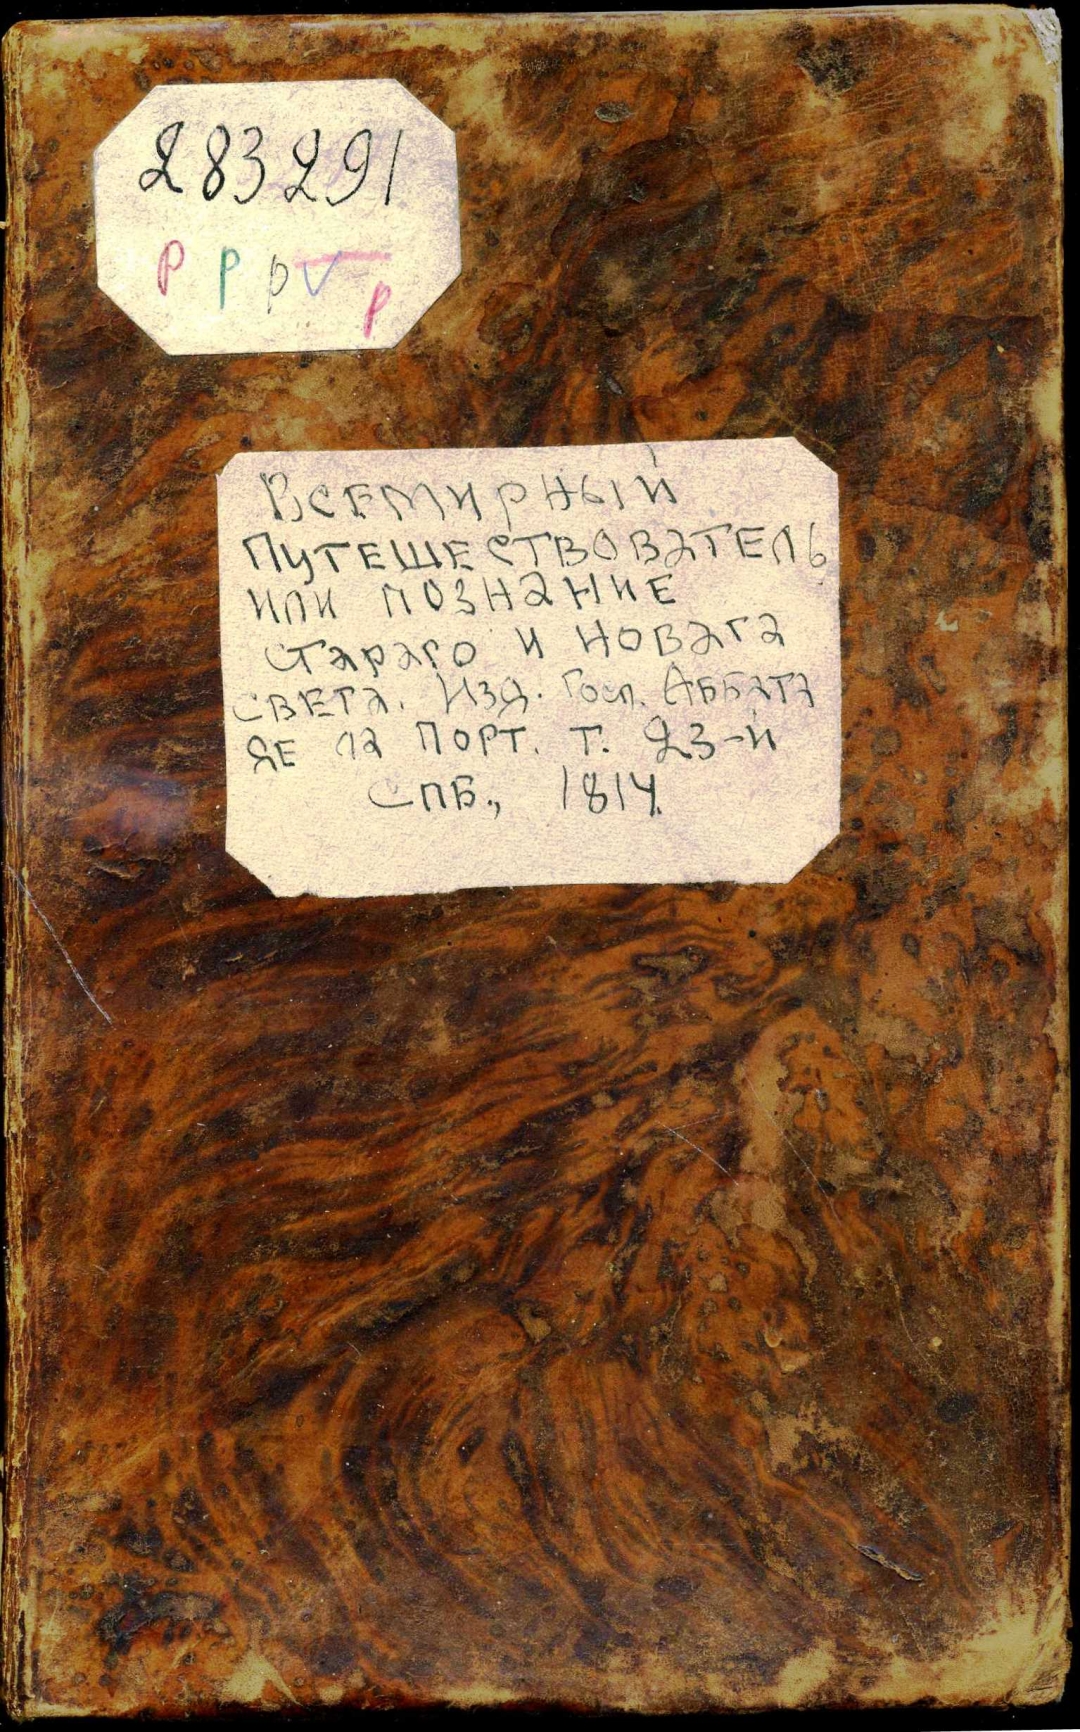 283291
р р р V р
Всемирный
Путешествователь
или познание
стараго и новага
света. Изд. Госп. Аббата
де ла Порт. т. 23-й
СПБ., 1814.